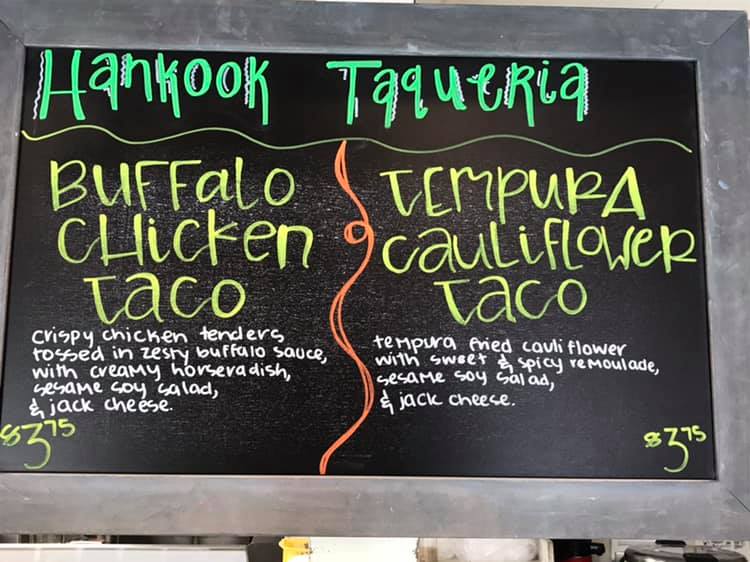 Hankook Taqueria
Buffalo
Chicken
Taco
crispy chicken tenders
tossed in zesty buffalo sauce,
with creamy horseradish,
sesame soy salad,
& jack cheese.
$3.75
Tempura
Cauliflower
Taco
tempura fried cauliflower
with sweet & spicy remoulade,
sesame soy salad,
& jack cheese.
$3.75